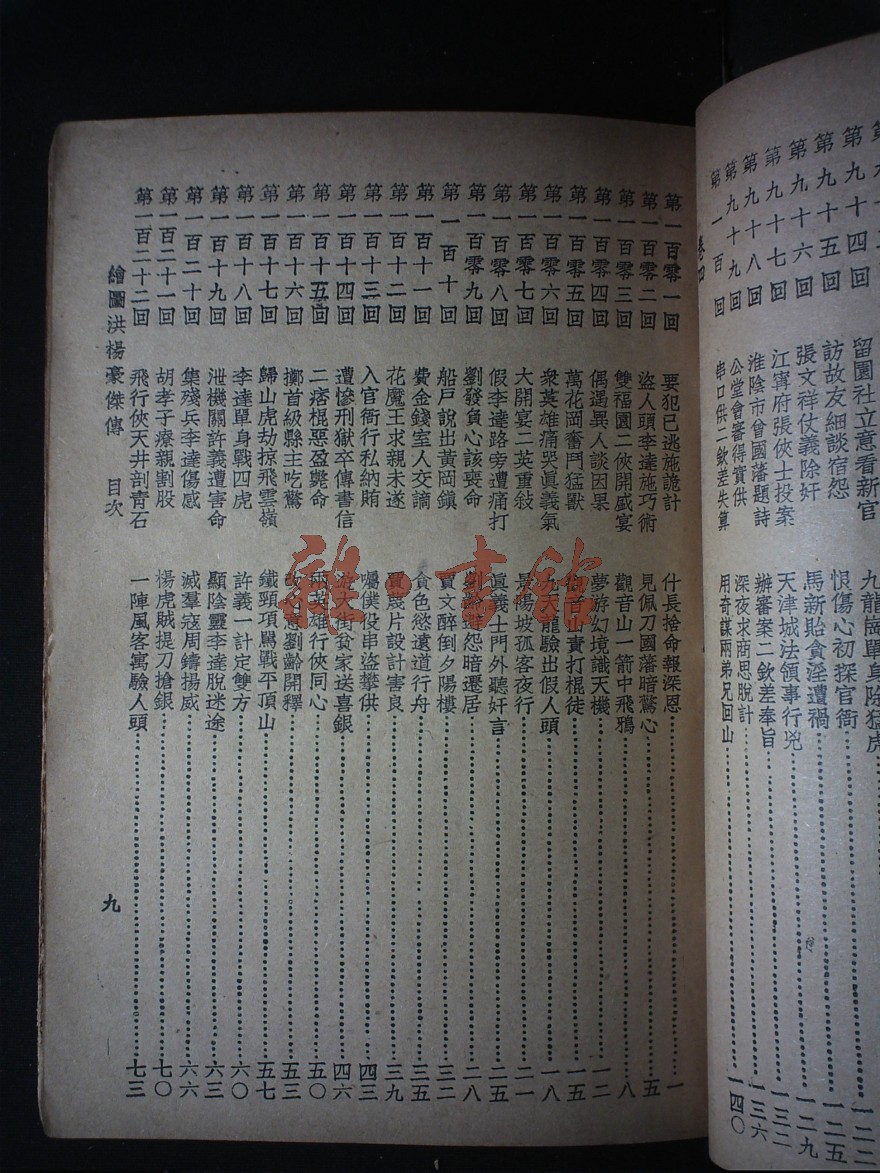 第九十四回 留園社立意看新官 九龍崗單身除猛虎 一二二
第九十五回 訪故友細談宿怨 恨傷心初探官衙 一二五
第九十六回 張文祥仗義除奸 馬新貽貪淫遭禍 一二九
第九十七回 江寧府張俠士投案 天津城法領事行兇 一三二
第九十八回 淮陰市曾國藩題詩 辦審案二欽差奉旨 一三六
第九十九回 公堂會審得實供 深夜求商思脫計
第一百回 串口供二欽差失算 用奇謀兩弟兄回山 一四〇
卷四
第一百零一回 要犯已逃施詭計 什長捨命報深恩 一
第一百零二回 盜人頭李達施巧術 見佩刀國藩暗驚心 五
第一百零三回 雙福園二俠開盛宴 觀音山一箭中飛鴉 八
第一百零四回 偶遇異人談因果 夢游幻境識天機 一二
第一百零五回 萬花岡奮鬥猛獸 觀音山責打棍徒 一五
第一百零六回 衆英雄痛哭眞義氣 九天龍驗出假人頭 一八
第一百零七回 大開宴二英重敍 景陽坡孤客夜行 二一
第一百零八回 假李達路旁遭痛打 眞義士門外聽奸言 二五
第一百零九回 劉發負心該喪命 劉齡避怨暗遷居 二八
第一百十回 船戶說出黃岡鎮 賈文醉倒夕陽樓 三二
第一百十一回 費金錢室人交謫 貪色慾遠道行舟 三五
第一百十二回 花魔王求親未遂 賈蔑片設計害良 三九
第一百十三回 入官衙行私納賄 囑僕役串盜攀供 四三
第一百十四回 遭慘刑獄卒傳書信 遊大街貧家送喜銀 四六
第一百十五回 二痞棍惡盈斃命 兩英雄行俠同心 五〇
第一百十六回 擲首級縣主吃驚 改心意劉齡開釋 五三
第一百十七回 歸山虎劫掠飛雲嶺 鐵頸項罵戰平頂山 五七
第一百十八回 李達單身戰四虎 許義一計定雙方 六〇
第一百十九回 泄機關許義遭害命 顯陰靈李達脫迷途 六三
第一百二十回 集殘兵李達傷感 滅羣寇周鑄揚威 六六
第一百二十一回 胡孝子療親割股 楊虎賊提刀搶銀 七〇
第一百二十二回 飛行俠天井剖青石 一陣風客寓驗人頭 七三
繪圖洪楊豪傑傳 目次 九
雜·書館